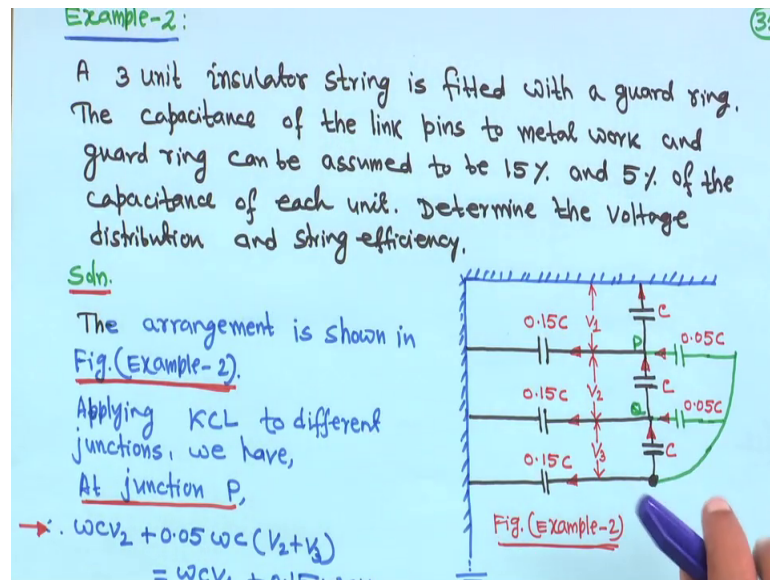 Example-2:
A 3 unit insulator string is fitted with a guard ring.
The capacitance of the link pins to metal work and
guard ring can be assumed to be 15% and 5% of the
capacitance of each unit. Determine the voltage
distribution and string efficiency.
Soln.
The arrangement is shown in
Fig.(Example-2).
Applying KCL to different
junctions, we have,
At junction P,
∴ ωCV₂ + 0.05 ωC (V₂+V₃)
C
0.15C V₁
P 0.05C
C
0.15C V₂
Q 0.05C
C
0.15C V₃
Fig.(Example-2)